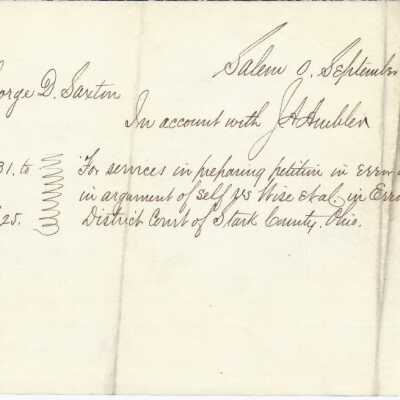 Salem O. September
orge D. Saxton
In account with J A Ambler
31. to For services in preparing petition in error
in argument of self vs Wise et al. in Erro
25. District Court of Stark County, Ohio.